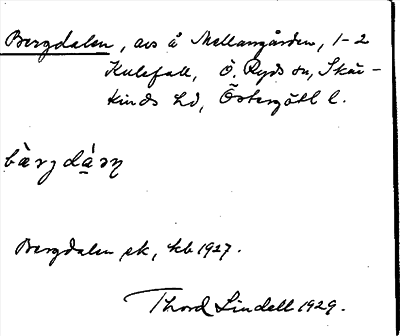 Bergdalen, avs å Mellangården, 1-2
Kulefall, Ö. Ryds sn, Skär-
kinds hd, Östergötl l.
Bergdalen ek, kb 1927.
Thord Lindell 1929.